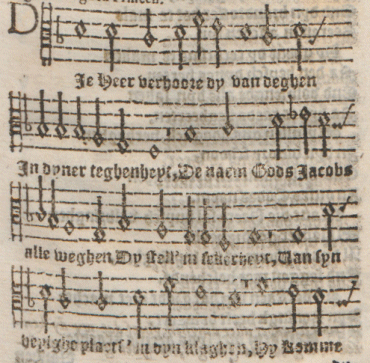 DJe Heer verhoore dy van deghen
Jn dyner teghenheyt, De naem Gods Jacobs
alle weghen, Dy stell' in sekerheyt, Van syn
heylighe plaets' in dyn klaghen, Hy komme